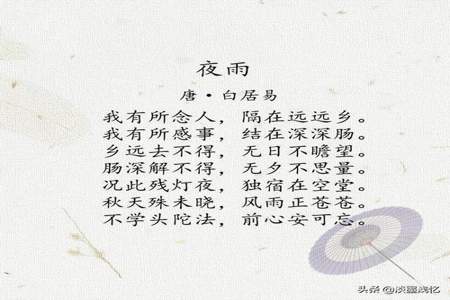 夜雨
唐·白居易
我有所念人，隔在远远乡。
我有所感事，结在深深肠。
乡远去不得，无日不瞻望。
肠深解不得，无夕不思量。
况此残灯夜，独宿在空堂。
秋天殊未晓，风雨正苍苍。
不学头陀法，前心安可忘。
头条